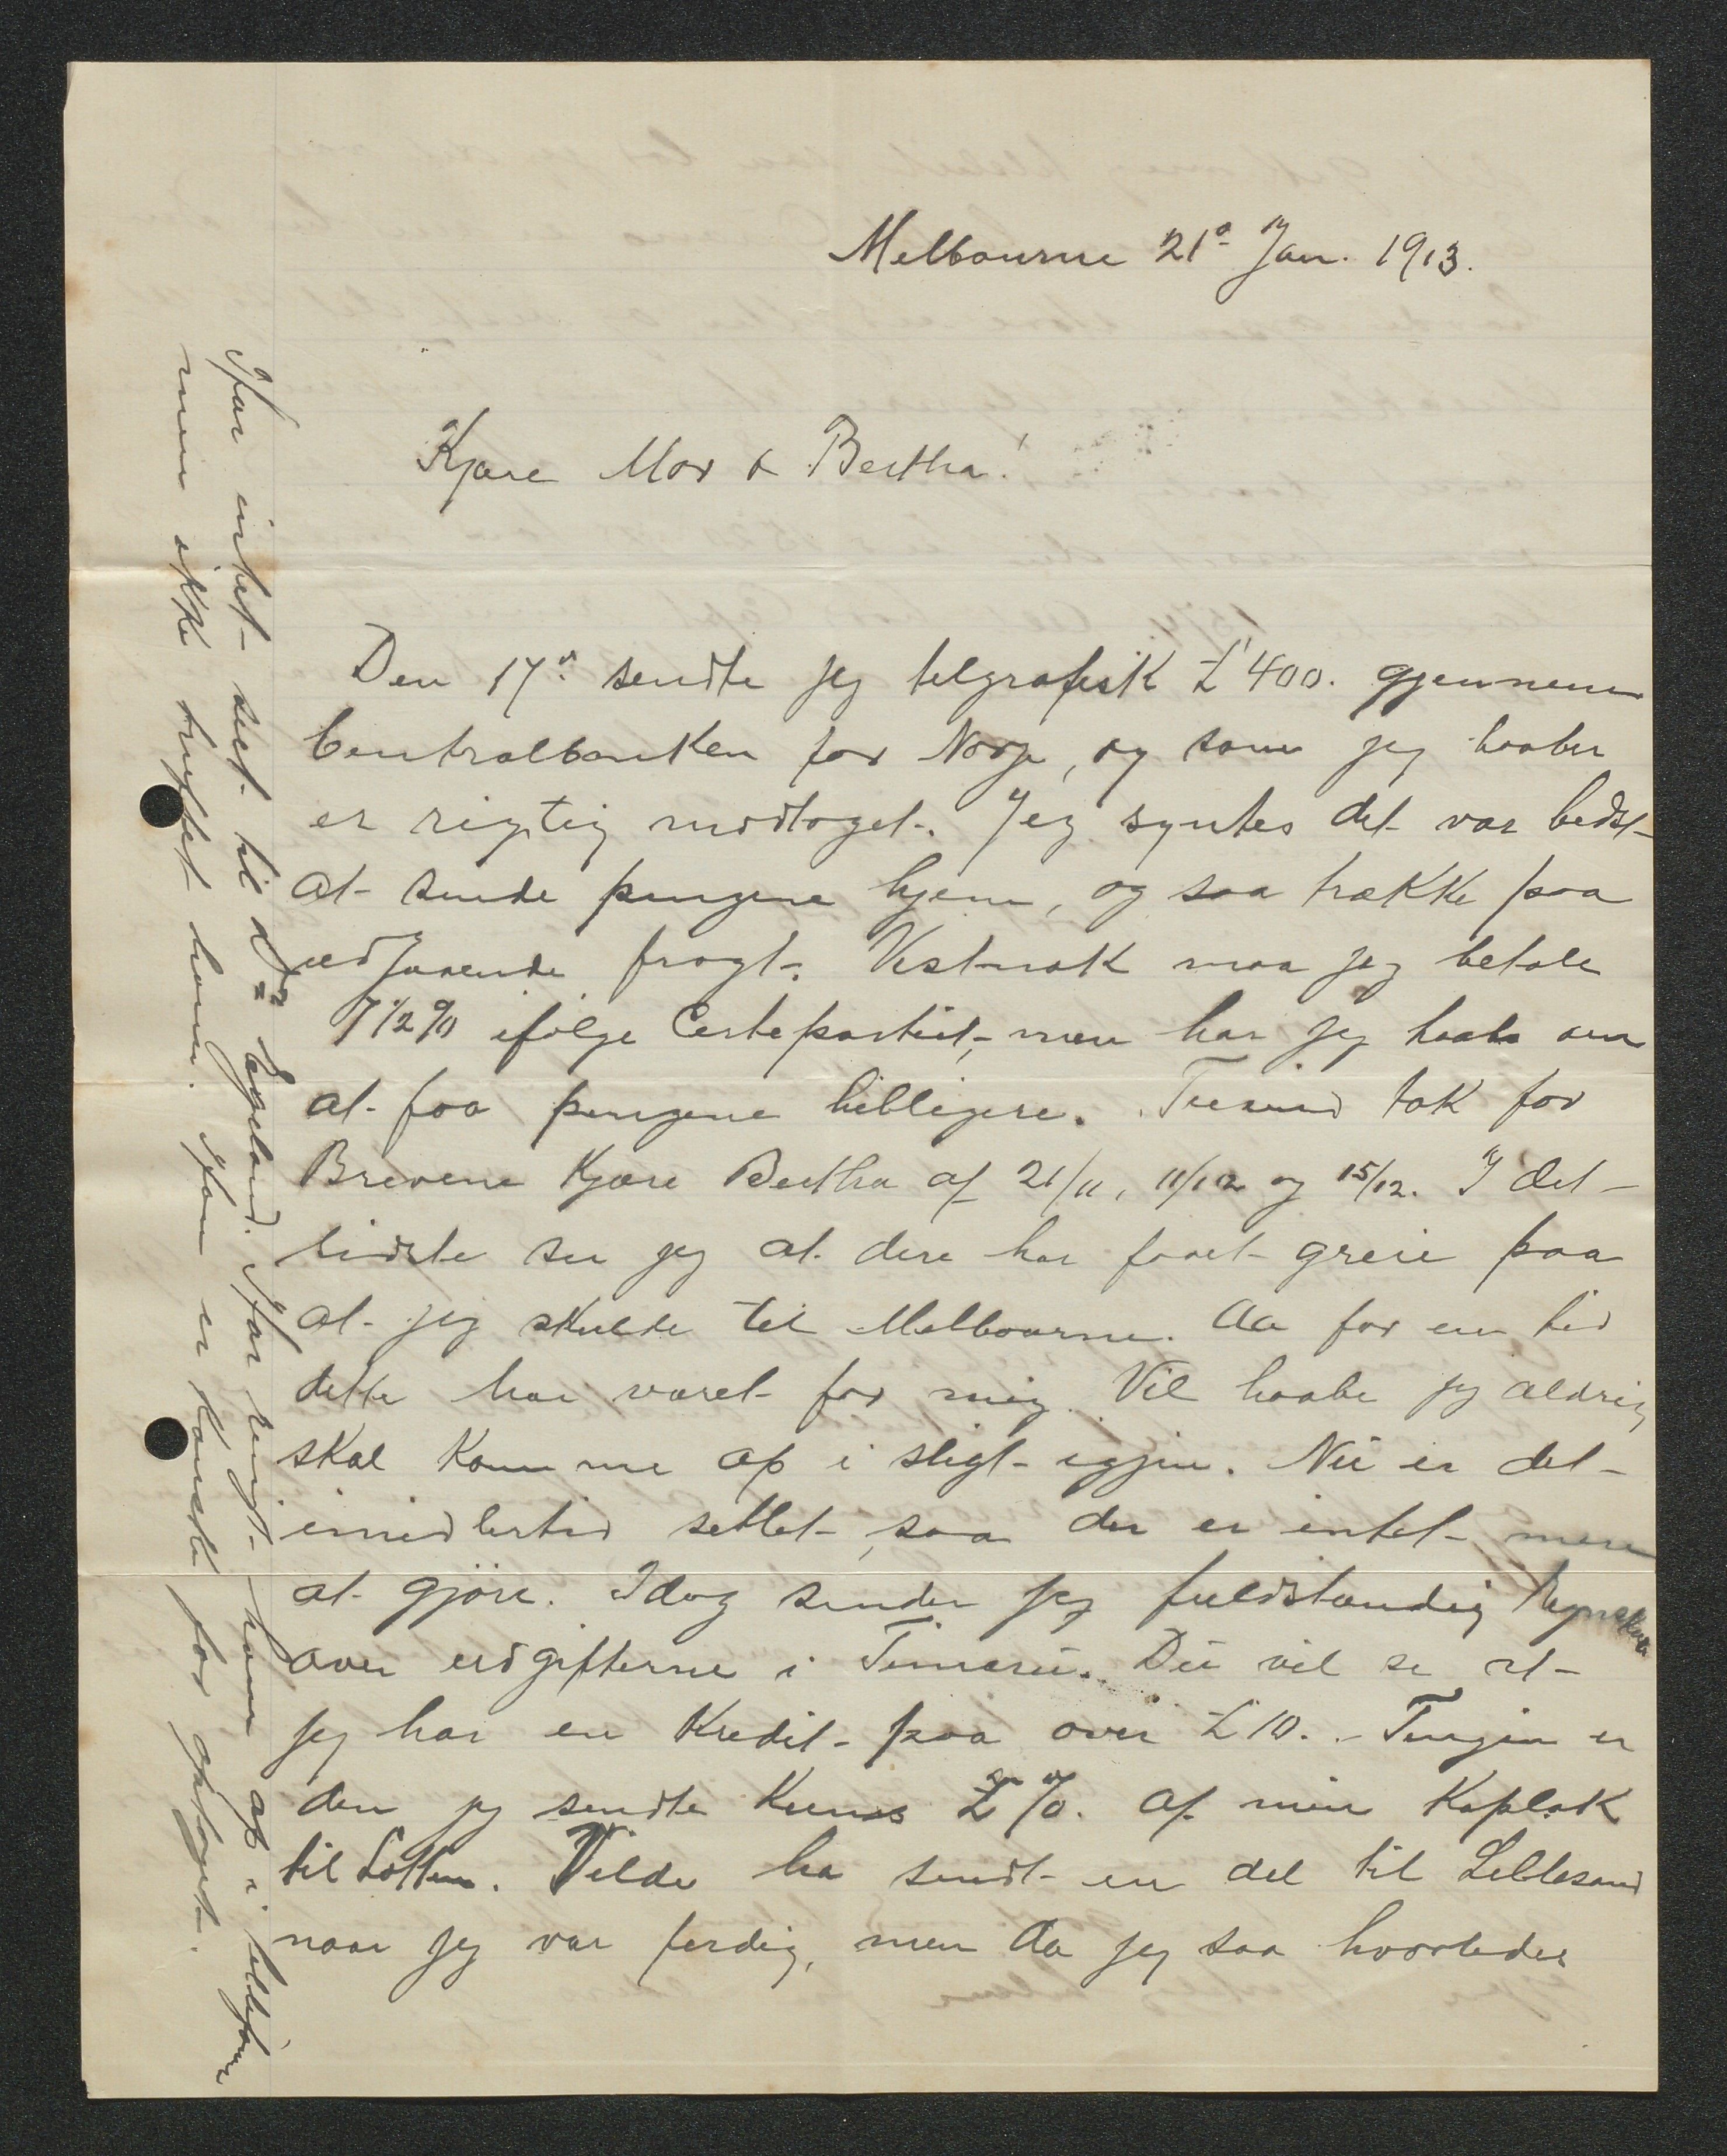 Melbourne 21de Jan. 1913.
Kjære Mor & Bertha!
Den 17de sendte jeg telgrafisk £ 400. gjennem
Centralbanken for Norge, og som jeg haaber
er rigtig modtaget. Jeg syntes det var bedst
at sende pengene hjem, og saa trække paa
udgaaende fragt. Vistnok maa jeg betale
7 1/2 % ifølge Certepartiet, men har jeg haab om
at faa pengene billigere. Tusind tak for
Brevene Kjære Bertha af 21/11, 11/12 og 15/12. I det
sidste ser jeg at dere har faaet greie paa
at jeg skulde til Melbourne. Aa for en tid
dette har været for mig. Vil haabe jeg aldrig
skal komme op i sligt igjen. Nu er det
imidlertid settlet, saa der er intet mere
at gjøre. Idag sender jeg fuldstændig Regnskab
over udgifterne i Timaru. Du vil se at
jeg har en Kredit paa over £ 10. Tingen er
den jeg sendte Kuns % af min Kaplak
til Lotten. Vilde ha sendt en del til Lillesand
naar jeg var ferdig, men da jeg saa hvorledes
Har intet seet til Egeland. Har ringt ham op i telefon
men ikke truffet ham. Han er kanske for optaget.